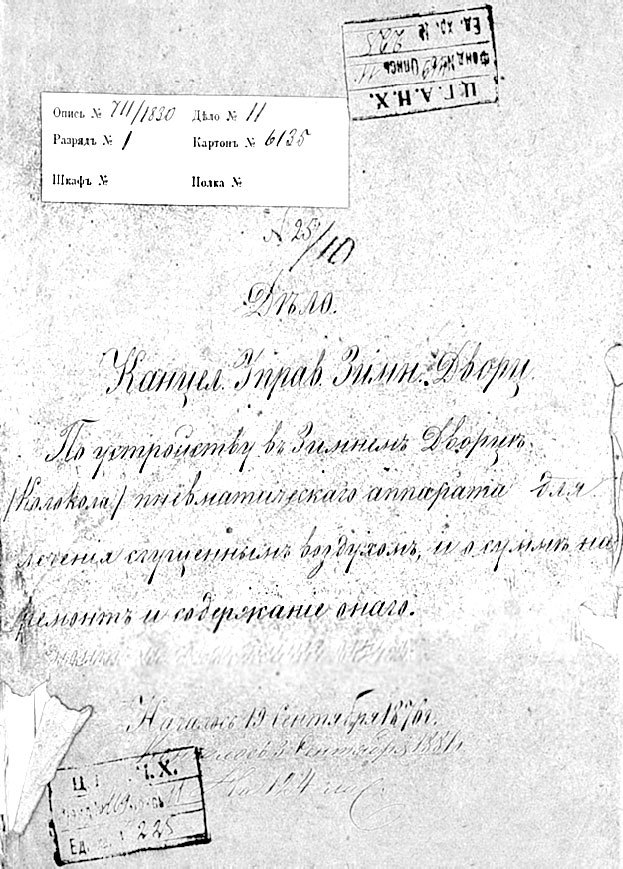 Ц.Г.А.Н.Х.
Фонд № 469 Опись 11
Ед. хр. № 225
Опись № VII/1830 Дѣло № 11
Разрядъ № 1 Картонъ № 6135
Шкафъ № Полка №
№ 25/10
Дѣло.
Канцел. Управ. Зимн. Дворц.
По устройству въ Зимнемъ Дворцѣ
/Колокола/ пневматическаго аппарата для
леченія сгущеннымъ воздухомъ, и о суммѣ на
ремонтъ и содержаніе онаго.
Началось 19 Сентября 1876 г.
Сентября 1881 г.
На 124
Ц Х.
11
Ед. 225